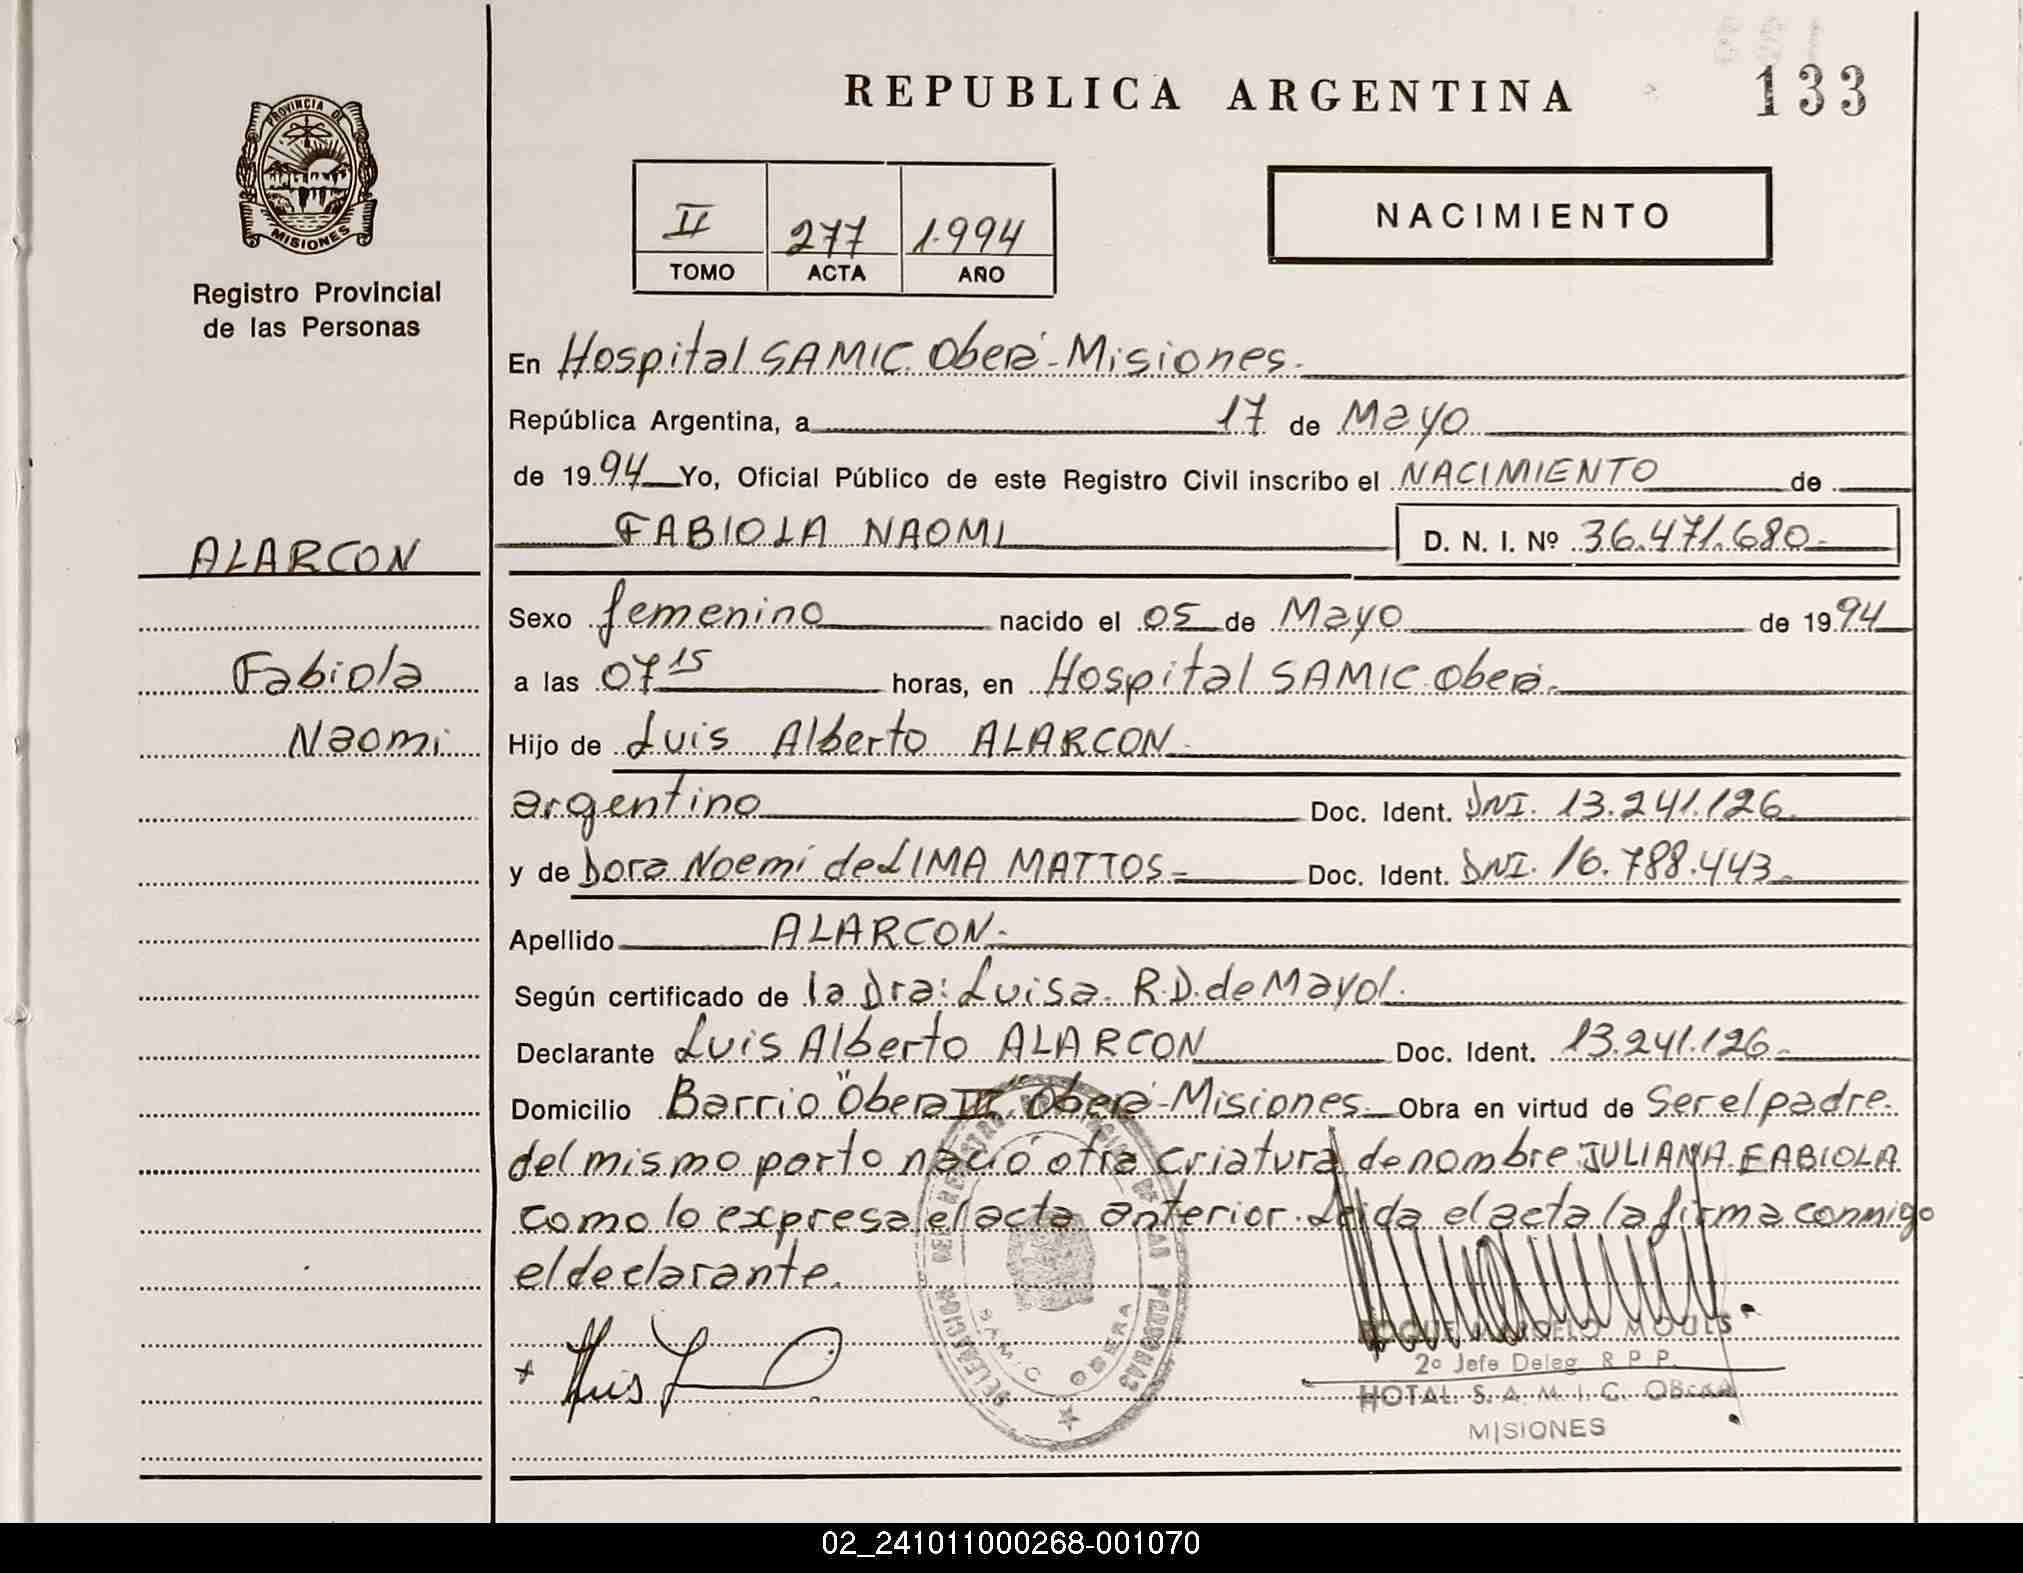 REPUBLICA ARGENTINA
133
PROVINCIA DE
MISIONES
Registro Provincial
de las Personas
II 277 1.994
TOMO ACTA AÑO
NACIMIENTO
En Hospital SAMIC. Oberá-Misiones.
República Argentina, a 17 de Mayo
de 1994 Yo, Oficial Público de este Registro Civil inscribo el NACIMIENTO de
FABIOLA NAOMI D. N. I. Nº 36.471.680.-
ALARCON
Fabiola
Naomi
Sexo femenino nacido el 05 de Mayo de 1994
a las 07 15 horas, en Hospital SAMIC. Oberá.
Hijo de Luis Alberto ALARCON.
argentino Doc. Ident. DNI. 13.241.126.
y de Dora Noemí de LIMA MATTOS.= Doc. Ident. DNI. 16.788.443.
Apellido ALARCON.-
Según certificado de la Dra: Luisa. R.D. de Mayol.
Declarante Luis Alberto ALARCON Doc. Ident. 13.241.126.
Domicilio Barrio "Oberá II" Oberá-Misiones. Obra en virtud de Ser el padre.
del mismo parto nació otra criatura de nombre JULIANA FABIOLA
como lo expresa el acta anterior. Leida el acta la firma conmigo
el declarante.
DELEGACION DEL REGISTRO DE LAS PERSONAS
SAMIC OBERA
+ Luis
2º Jefe Deleg. R P P.
HOTAL. S. A. M. I. C. OBERA
MISIONES
02_241011000268-001070